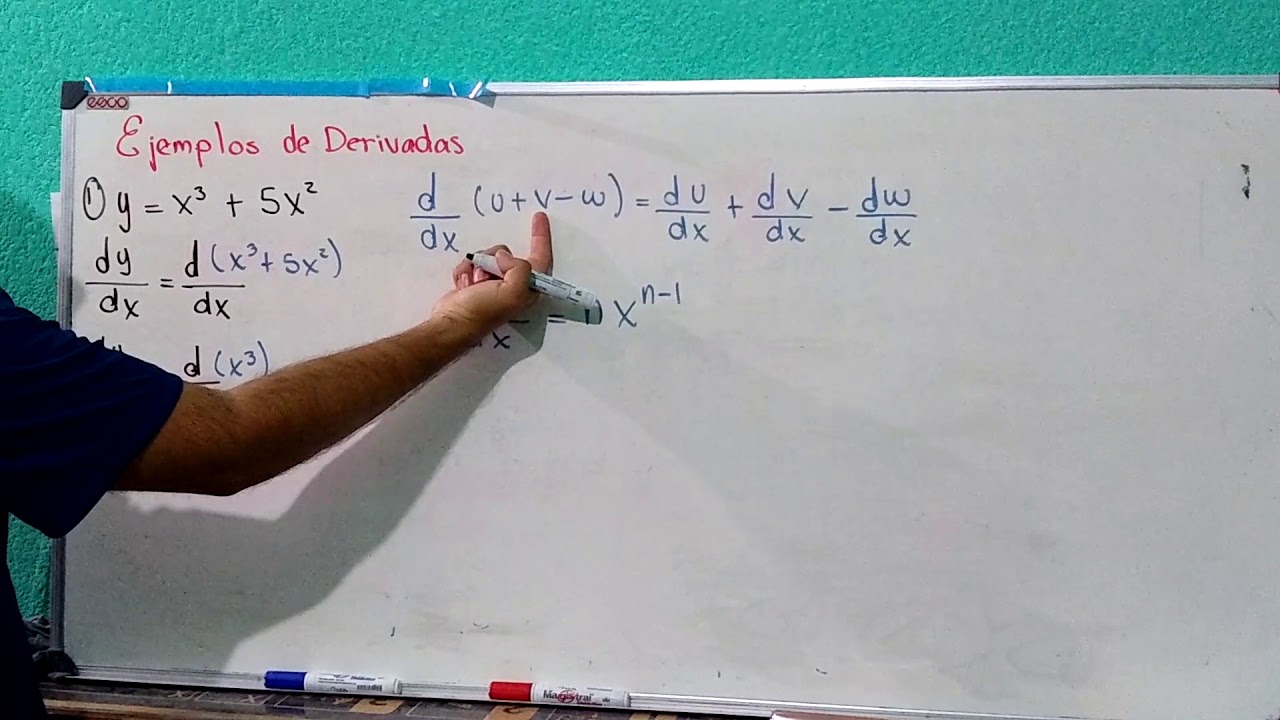 Ejemplos de Derivadas
1) y = x³ + 5x²
dy/dx = d/dx (x³ + 5x²)
d (x³)
d/dx (u + v − w) = du/dx + dv/dx − dw/dx
x = x^{n−1}
Magistral